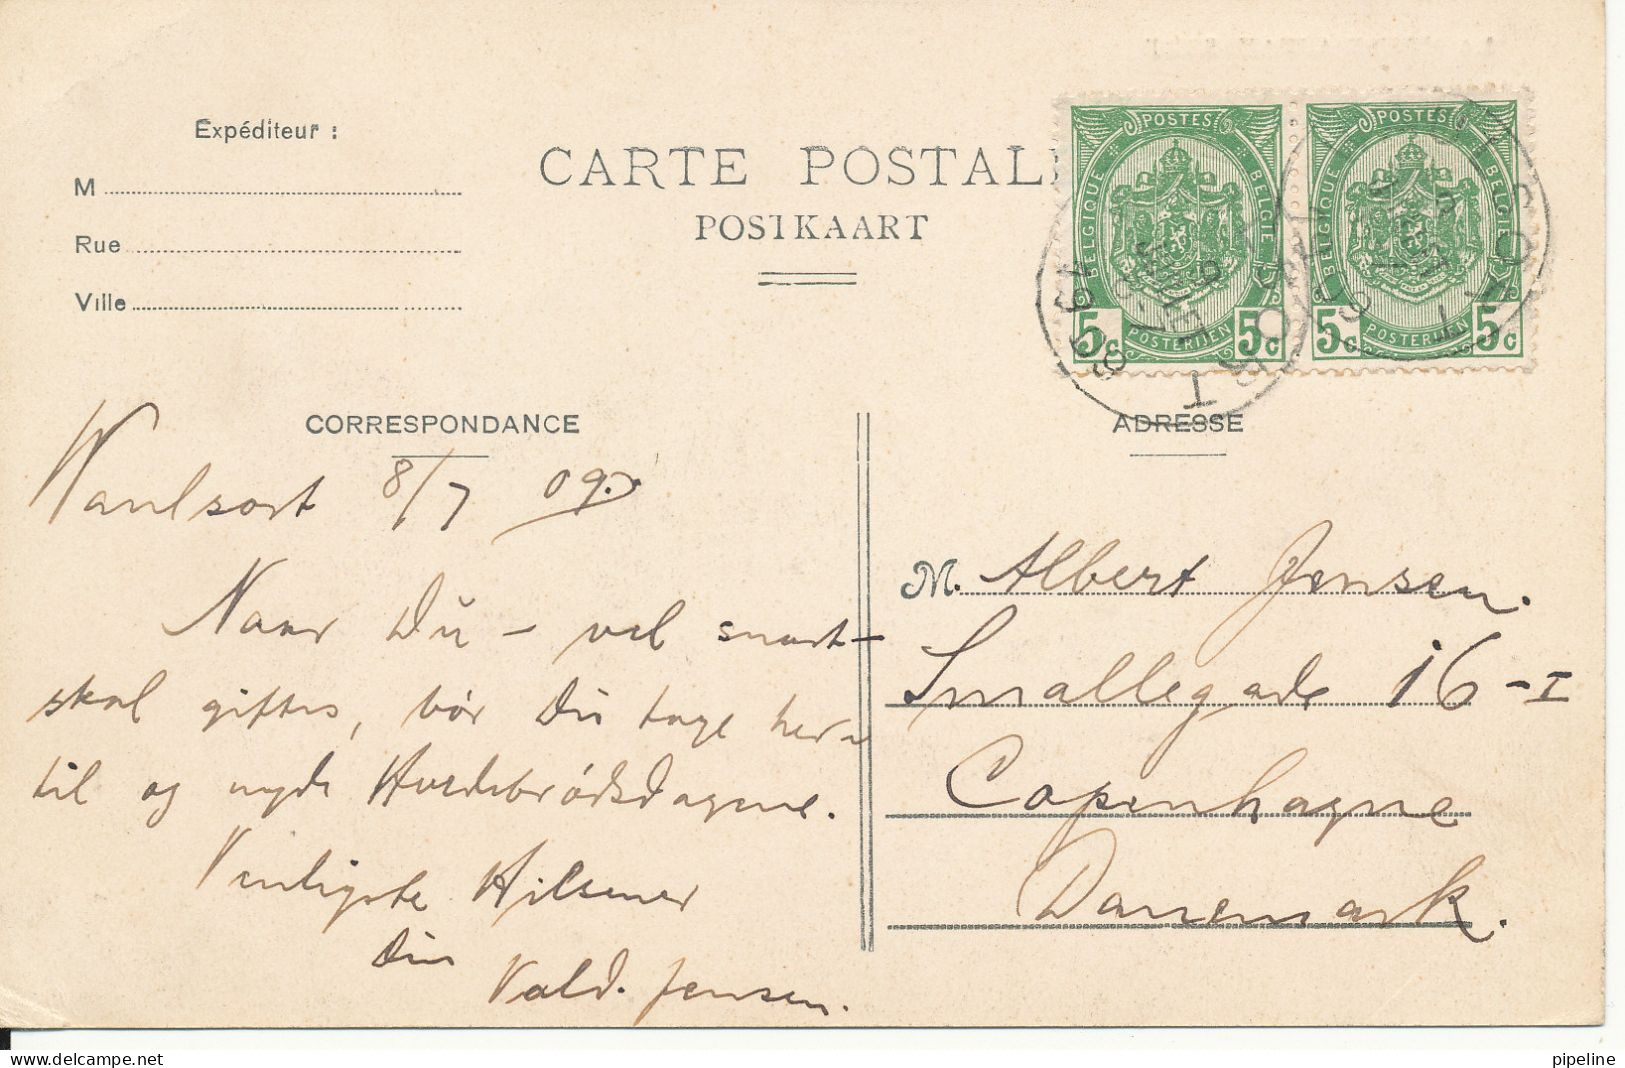 Expéditeur :
M
Rue
Ville
CARTE POSTAL
POSTKAART
POSTES
BELGIQUE
BELGIE
5c POSTERIJEN 5c
POSTES
BELGIQUE
BELGIE
5c POSTERIJEN 5c
CORRESPONDANCE
ADRESSE
Waulsort 8/7 09.
Naar Du – vel snart –
skal giftes, bör Du tage her-
til og nyde Hvedebrödsdagene.
Venligste Hilsener
Din
Vald. Jensen.
M. Albert Jensen.
Smallegade 16 - I
Copenhagne
Danemark.
delcampe.net
pipeline